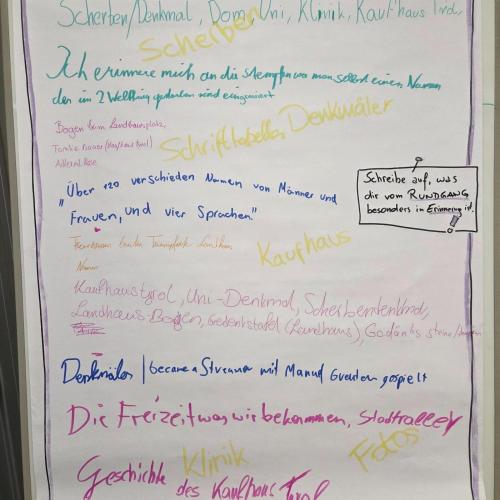 Scherben/Denkmal, Dom, Uni, Klinik, Kaufhaus
Scherben
Ich erinnere mich an die Stempfen wo man selbst einen Namen
der im 2 Weltkrieg sind
Bogen beim Landhausplatz,
Familie Bauer (Kaufhaus Tirol)
Schrifttabellen Denkmäler
"Über 120 verschieden Namen von Männer und
Frauen, und vier Sprachen"
Schreibe auf, was
dir vom RUNDGANG
besonders in Erinnerung ist.
Kaufhaus
Namen
Kaufhaustyrol, Uni-Denkmal, Scherbendenkmal,
Landhaus-Bogen, Gedenkstafel (Landhaus),
Denkmäler | became a Streamer mit Manuel gespielt
Die Freizeit was wir bekommen, Stadtralley
Klinik
Fotos
Geschichte des Kaufhaus Tyrol